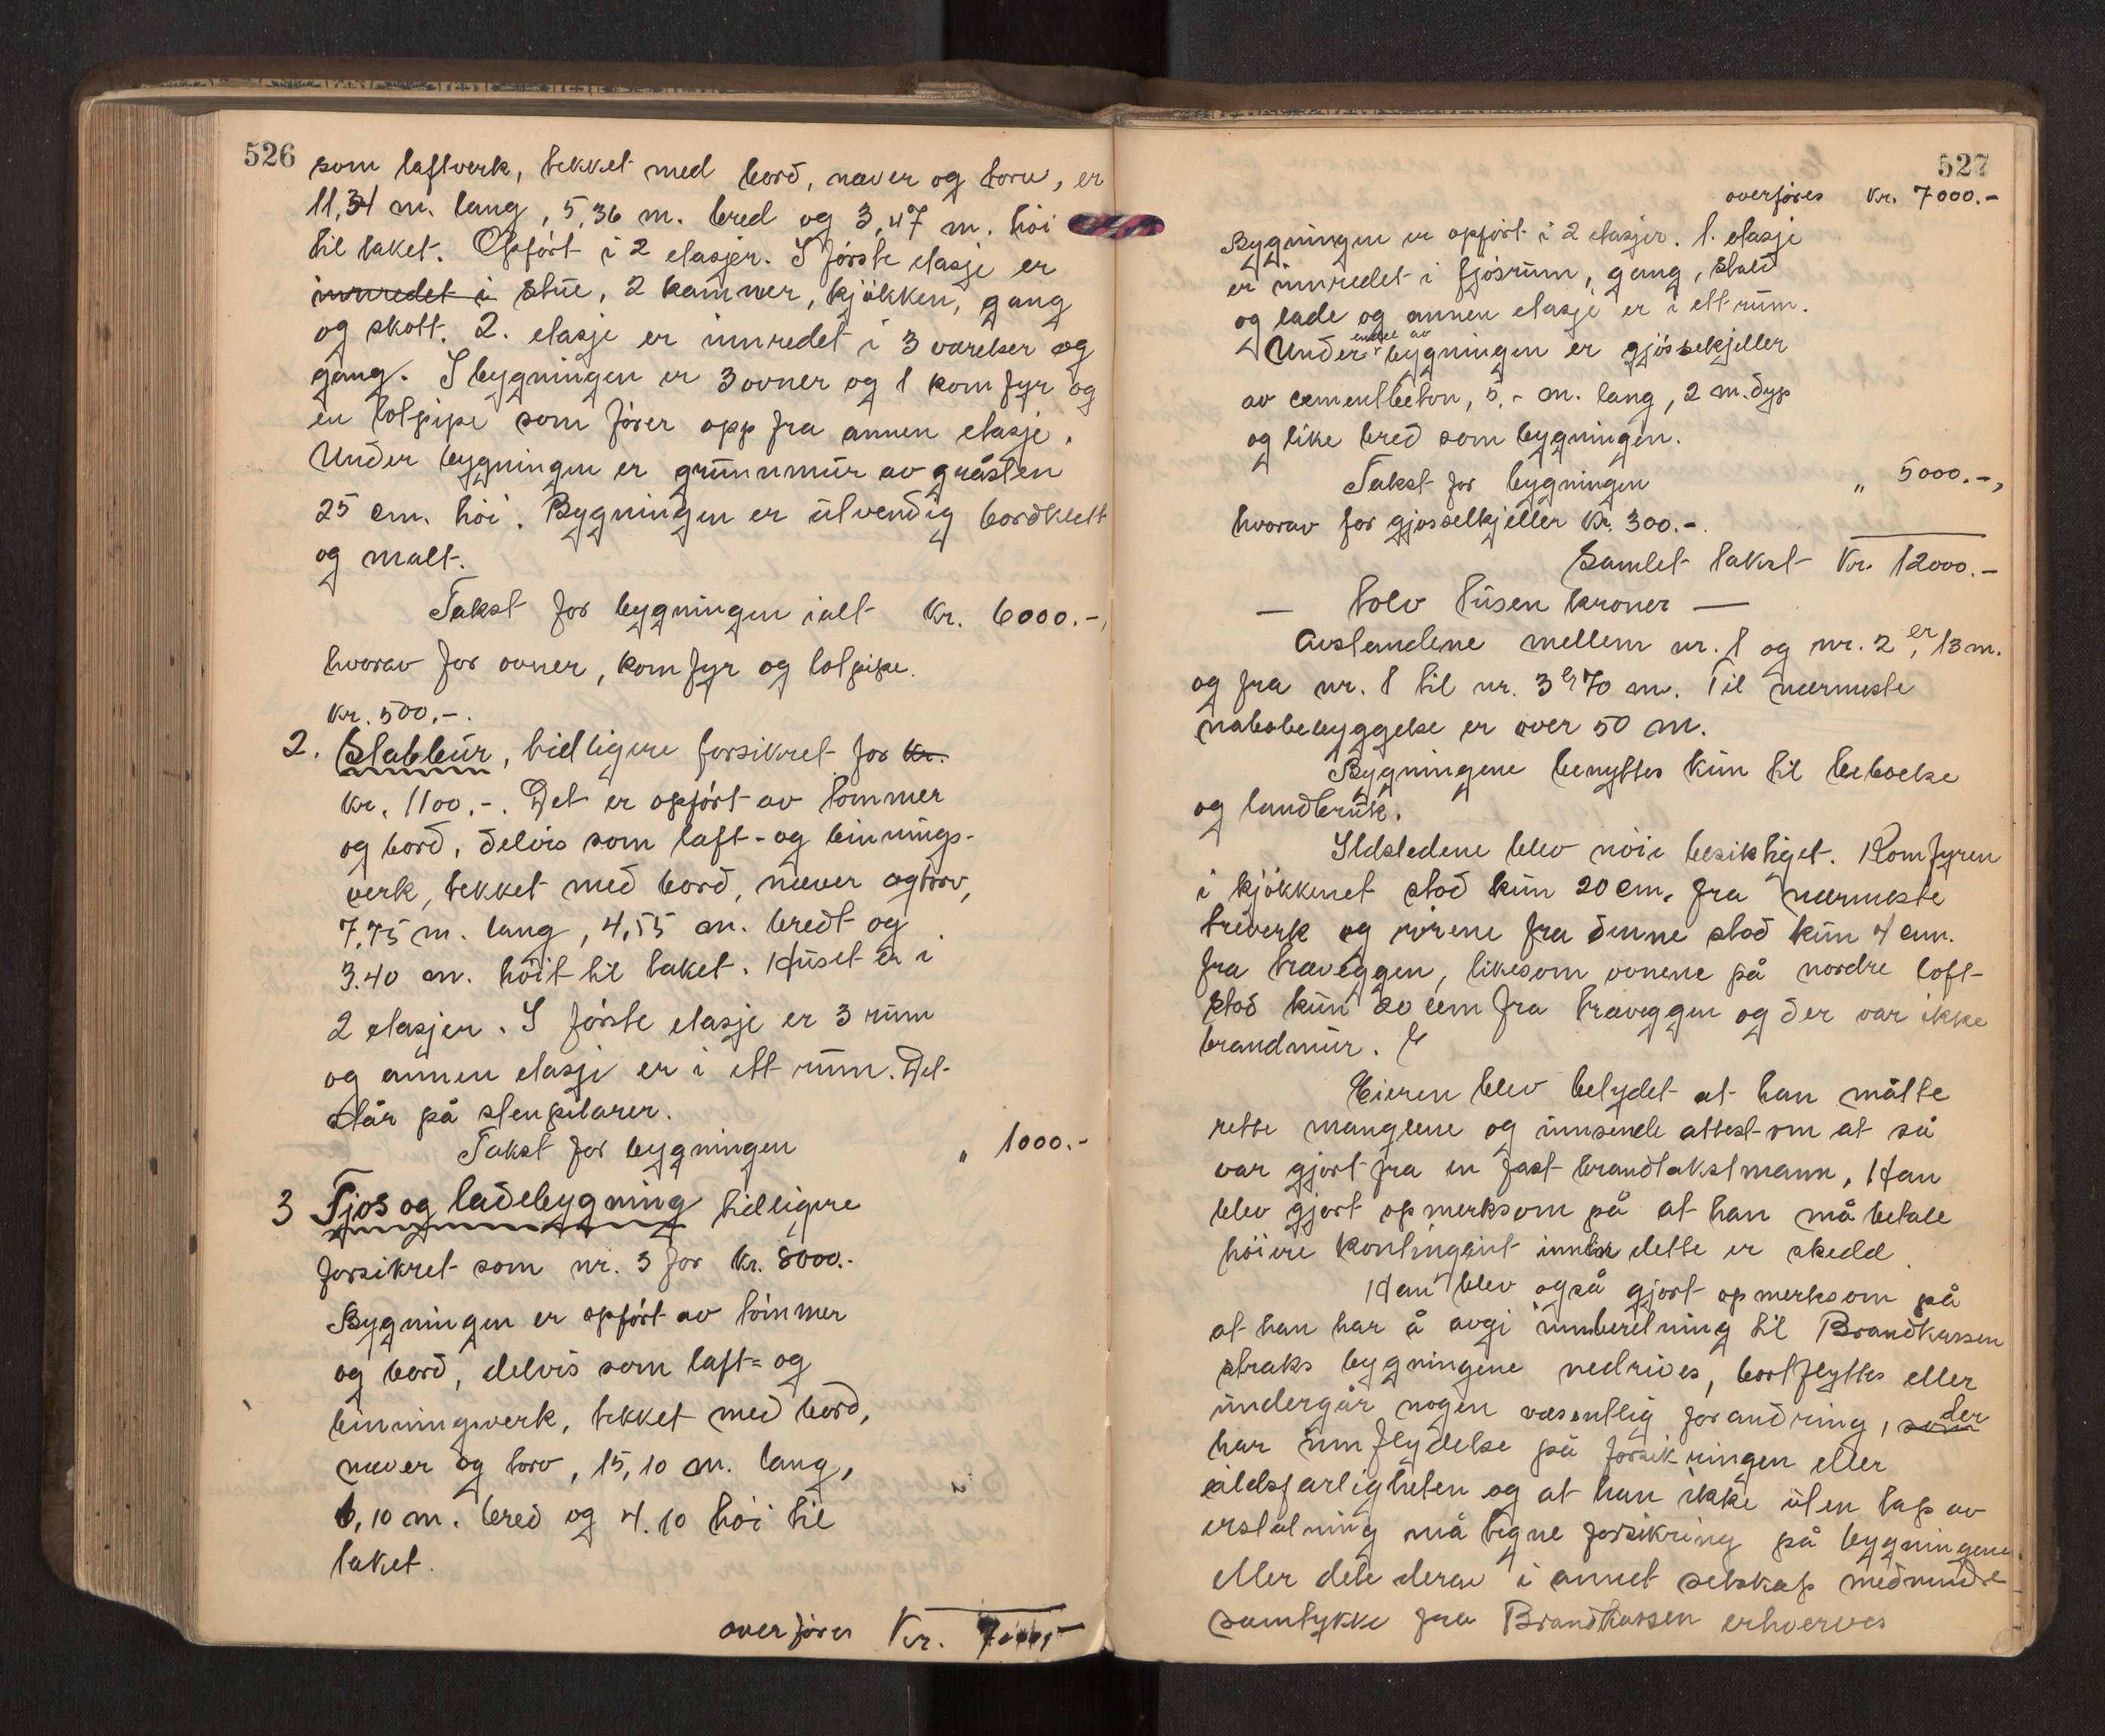 526
som laftverk, tekket med bord, næver og torv, er
11,34 m. lang, 5,36 m. bred og 3,47 m. høi
til taket. Opført i 2 etasjer. I første etasje er
innredet i stue, 2 kammer, kjøkken, gang
og skott. 2. etasje er innredet i 3 værelser og
gang. I bygningen er 3 ovner og 1 komfyr og
en totpipe som fører opp fra annen etasje.
Under bygningen er grunnmur av gråsten
25 cm. høi. Bygningen er utvendig bordklett
og malt.
Takst for bygningen ialt kr. 6000.-,
hvorav for ovner, komfyr og totpipe.
kr. 500.-.
2. Stabbur, tidligere forsikret for kr.
kr. 1100.-. Det er opført av tømmer
og bord, delvis som laft- og binnings-
verk, tekket med bord, næver og torv,
7,75 m. lang, 4,55 m. bredt og
3.40 m. høit til taket. Huset er i
2 etasjer. I første etasje er 3 rum
og annen etasje er i ett rum. Det
står på stenpilarer.
Takst for bygningen " 1000.-
3 Fjos og ladebygning tidligere
forsikret som nr. 3 for kr. 8000.-
Bygningen er opført av tømmer
og bord, delvis som laft= og
binningsverk, tekket med bord,
næver og torv, 15,10 m. lang,
6,10 m. bred og 4.10 høi til
taket.
overføres Kr. 7000,-
527
overføres kr. 7000.-
Bygningen er opført i 2 etasjer. 1. etasje
er innredet i fjøsrum, gang, stald
og lade og annen etasje er i ett rum.
endel av
Under bygningen er gjødselkjeller
av cementbeton, 5,- m. lang, 2 m. dyp
og like bred som bygningen.
Takst for bygningen " 5000.-,
hvorav for gjødselkjeller kr. 300.-.
Samlet takst Kr. 12000.-
— tolv tusen kroner —
Avstandene mellem nr. 1 og nr. 2 er 13 m.
og fra nr. 1 til nr. 3 er 70 m. Til nærmeste
nabobebyggelse er over 50 m.
Bygningene benyttes kun til beboelse
og landbruk.
Ildstedene blev nøie besiktiget. Komfyren
i kjøkkenet stod kun 20 cm. fra nærmeste
treverk og rørene fra denne stod kun 4 cm.
fra træveggen, likesom ovnene på nordre loft
stod kun 20 cm fra træveggen og der var ikke
brandmur. E
Eieren blev betydet at han måtte
rette manglene og innsende attest om at så
var gjort fra en fast brandtakstmann, Han
blev gjort opmerksom på at han må betale
høiere kontingent inntil dette er skedd.
Han blev også gjort opmerksom på
at han har å avgi innberetning til Brandkassen
straks bygningene nedrives, bortflyttes eller
undergår nogen væsentlig forandring, som der
har innflydelse på forsikringen eller
ildsfarligheten og at han ikke uten tap av
erstatning må tegne forsikring på bygningene
eller dele derav i annet selskap medmindre
samtykke fra Brandkassen erhverves